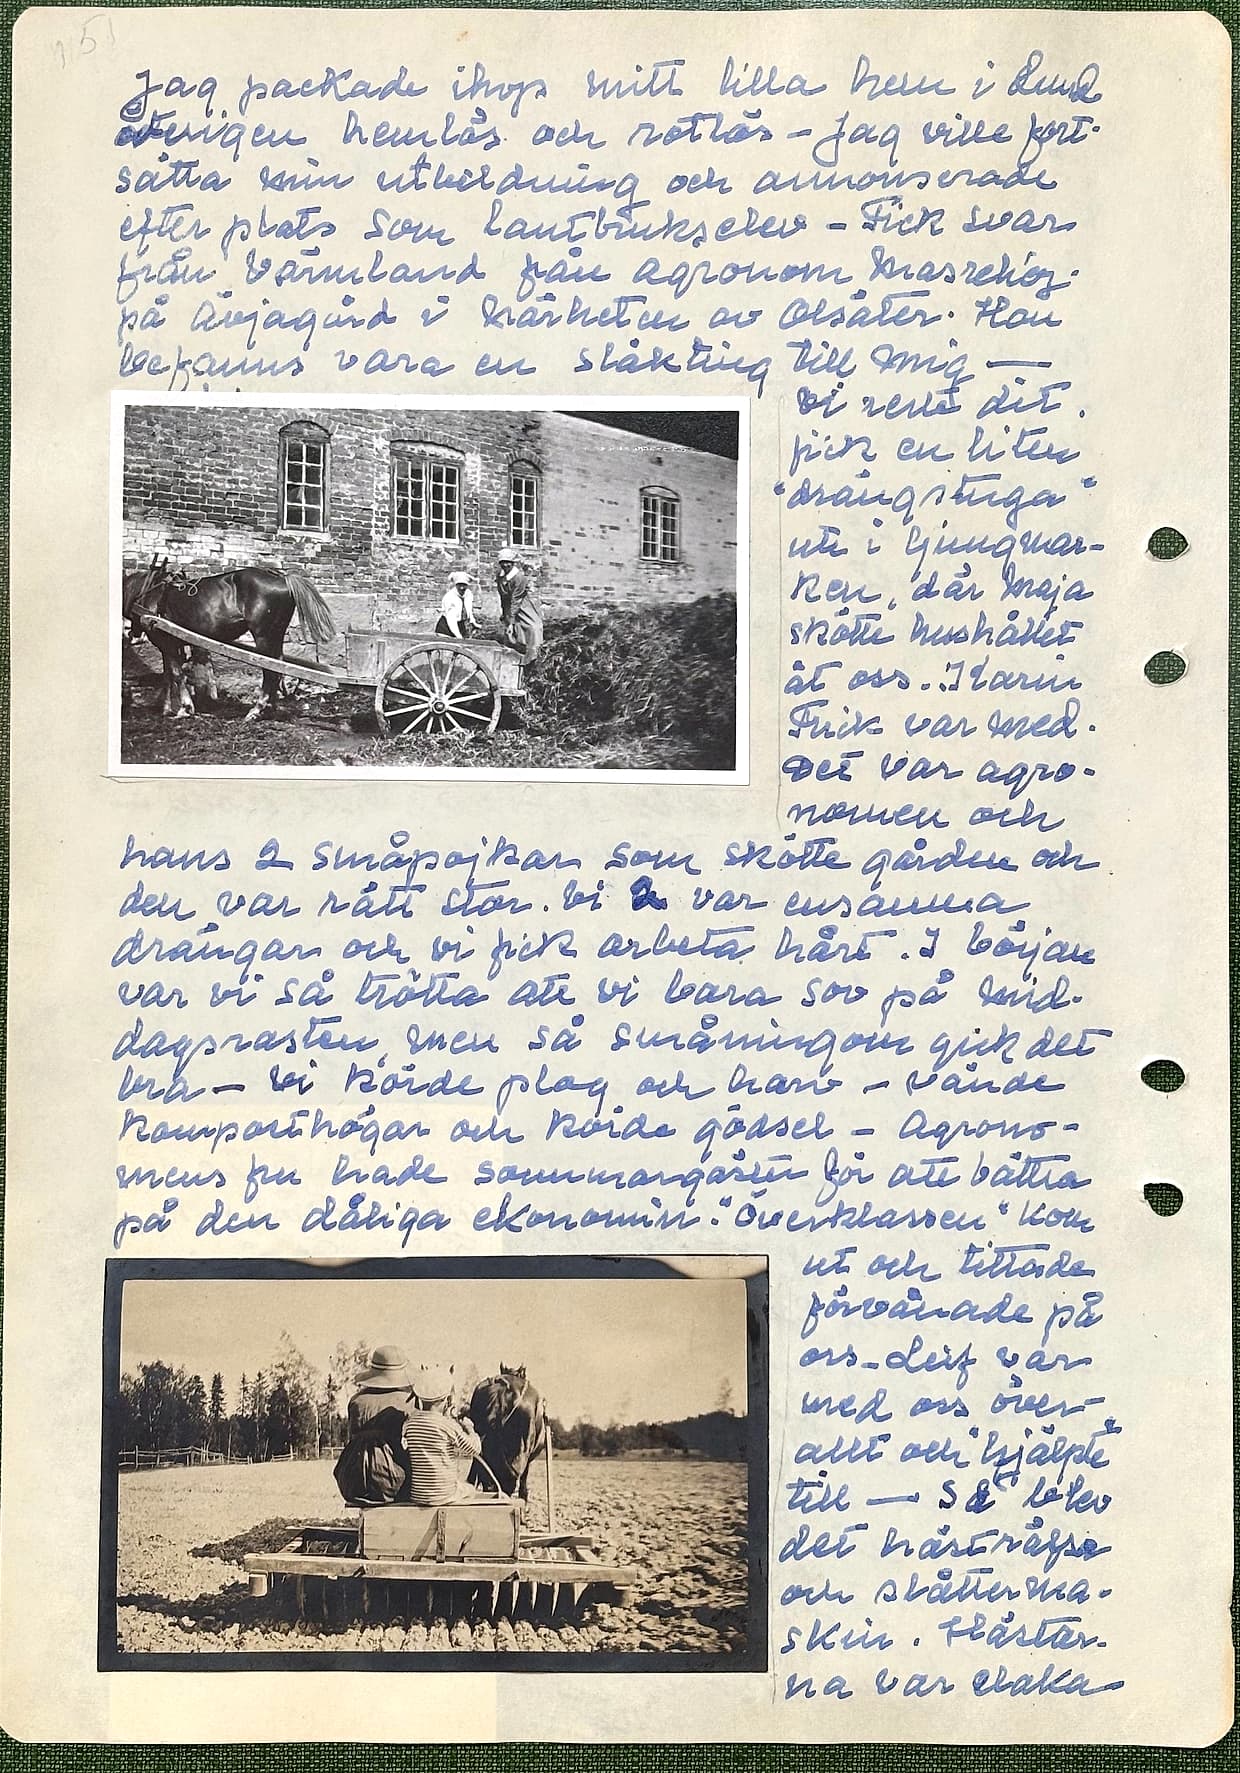 Jag packade ihop mitt lilla hem i Lund
återigen hemlös och rotlös – Jag ville fort-
sätta min utbildning och annonserade
efter plats som lantbrukselev – Fick svar
från Värmland från agronom
på i närheten av Olsäter. Han
befanns vara en släkting till mig —
vi reste dit.
fick en liten
"drängstuga"
ute i ljungmar-
ken, där Maja
skötte hushållet
åt oss. Karin
Frick var med.
Det var agro-
nomen och
hans 2 småpojkar som skötte gården och
den var rätt stor. Vi var ensamma
drängar och vi fick arbeta hårt. I början
var vi så trötta att vi bara sov på mid-
dagsrasten, men så småningom gick det
bra – Vi körde plog och harv – vände
komposthögar och körde gödsel – Agrono-
mens fru hade sommargäster för att bättra
på den dåliga ekonomin. "Överklassen" kom
ut och tittade
förvånade på
oss – Leif var
med oss över-
allt och "hjälpte"
till — Så blev
det hästräfsa
och slåtterma-
skin. Hästar-
na var elaka